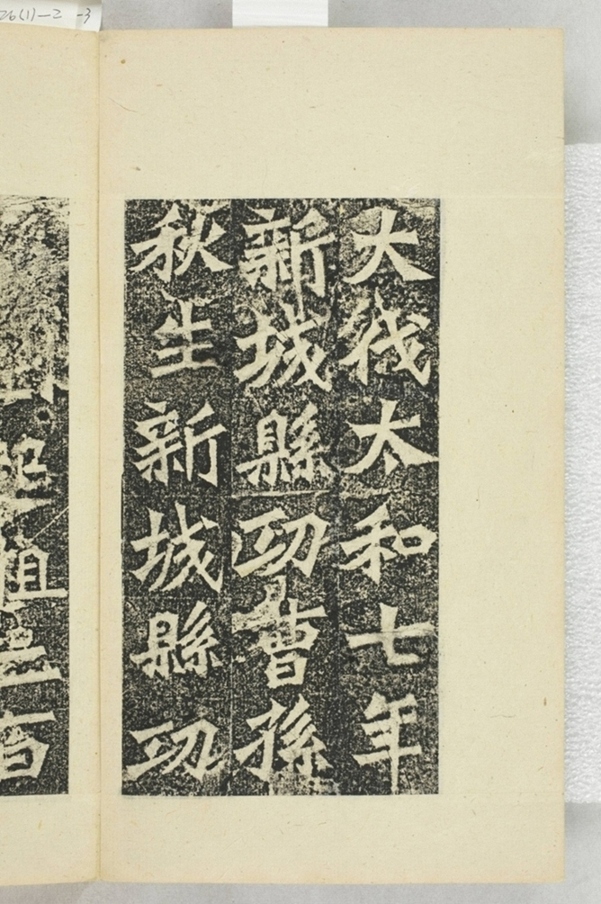 大代太和七年
新城縣功曹孫
秋生新城縣功
祖香百
26(1)-2 -3